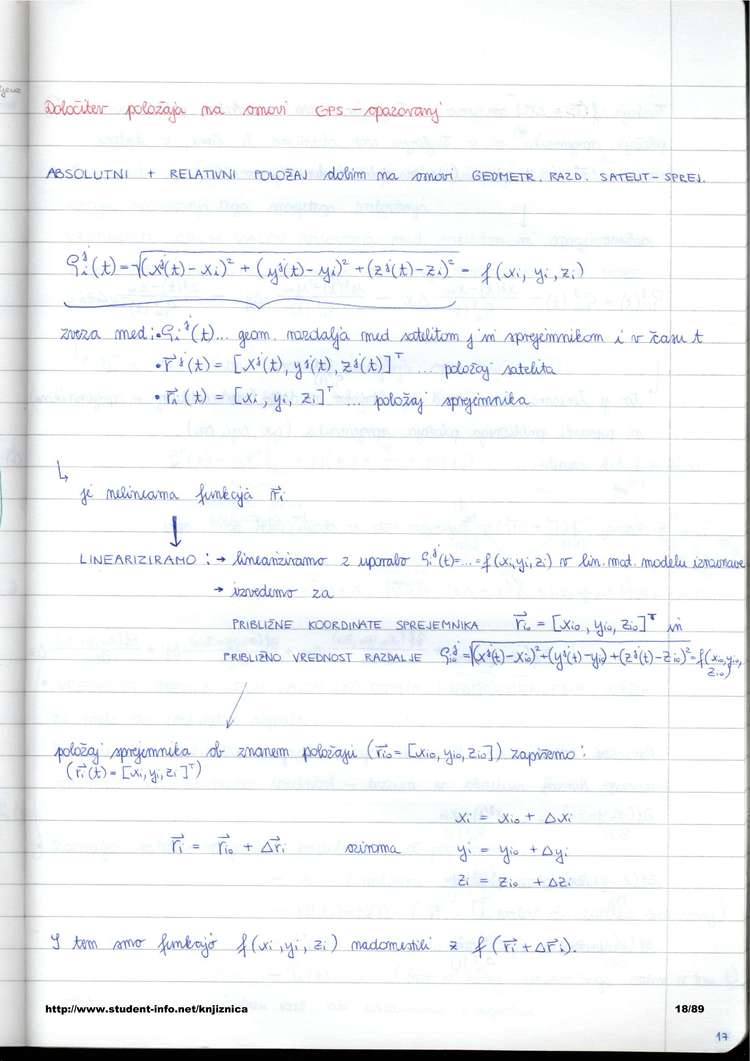 Določitev položaja na osnovi GPS – opazovanj
ABSOLUTNI + RELATIVNI POLOŽAJ dobim na osnovi GEOMETR. RAZD. SATELIT – SPREJ.
ρᵢʲ(t) = √((xʲ(t) – xᵢ)² + (yʲ(t) – yᵢ)² + (zʲ(t) – zᵢ)²) = f (xᵢ, yᵢ, zᵢ)
zveza med: • ρᵢʲ(t)... geom. razdalja med satelitom j in sprejemnikom i v času t
• r⃗ʲ(t) = [xʲ(t), yʲ(t), zʲ(t)]ᵀ ... položaj satelita
• r⃗ᵢ(t) = [xᵢ, yᵢ, zᵢ]ᵀ ... položaj sprejemnika
↳ je nelinearna funkcija r⃗ᵢ
↓
LINEARIZIRAMO : → lineariziramo z uporabo ρᵢʲ(t)=...=f(xᵢ,yᵢ,zᵢ) v lin. mat. modelu izravnave
→ izvedemo za
PRIBLIŽNE KOORDINATE SPREJEMNIKA r⃗ᵢ₀ = [xᵢ₀, yᵢ₀, zᵢ₀]ᵀ in
PRIBLIŽNO VREDNOST RAZDALJE ρᵢ₀ʲ = √((xʲ(t)–xᵢ₀)²+(yʲ(t)–yᵢ₀)+(zʲ(t)–zᵢ₀)²) = f(xᵢ₀,yᵢ₀,
zᵢ₀)
položaj sprejemnika ob znanem položaju (r⃗ᵢ₀ = [xᵢ₀, yᵢ₀, zᵢ₀]) zapišemo:
(r⃗ᵢ(t) = [xᵢ, yᵢ, zᵢ]ᵀ)
xᵢ = xᵢ₀ + Δxᵢ
r⃗ᵢ = r⃗ᵢ₀ + Δr⃗ᵢ oziroma yᵢ = yᵢ₀ + Δyᵢ
zᵢ = zᵢ₀ + Δzᵢ
S tem smo funkcijo f(xᵢ, yᵢ, zᵢ) nadomestili z f(r⃗ᵢ + Δr⃗ᵢ).
http://www.student-info.net/knjiznica 18/89
17